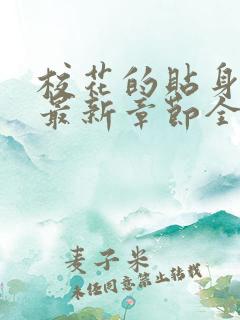 校花的贴身
最新章节全
麦子米
未经同意禁止转载